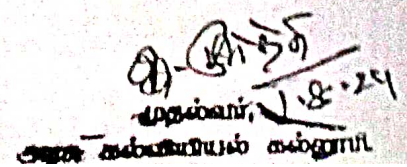 1.8.24
முதல்வர்,
அரசு கல்வியியல் கல்லூரி